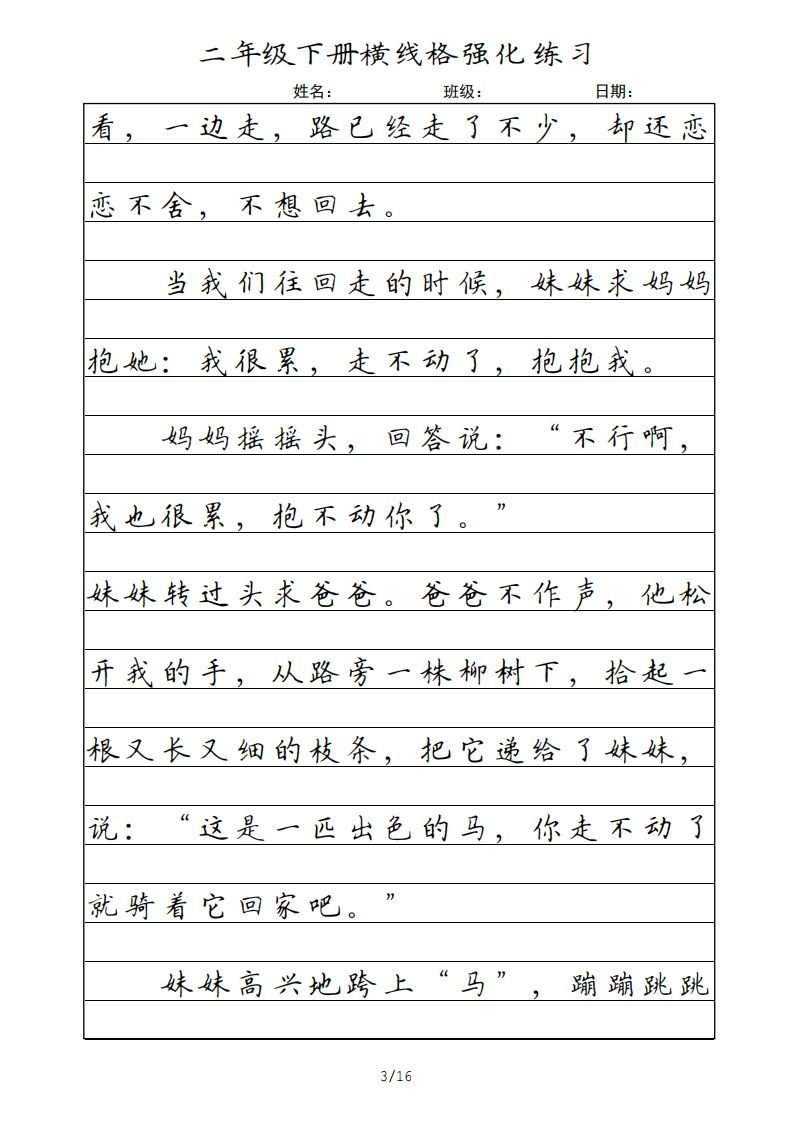 二年级下册横线格强化练习
姓名： 班级： 日期：
看，一边走，路已经走了不少，却还恋
恋不舍，不想回去。
当我们往回走的时候，妹妹求妈妈
抱她：我很累，走不动了，抱抱我。
妈妈摇摇头，回答说：“不行啊，
我也很累，抱不动你了。”
妹妹转过头求爸爸。爸爸不作声，他松
开我的手，从路旁一株柳树下，拾起一
根又长又细的枝条，把它递给了妹妹，
说：“这是一匹出色的马，你走不动了
就骑着它回家吧。”
妹妹高兴地跨上“马”，蹦蹦跳跳
3/16